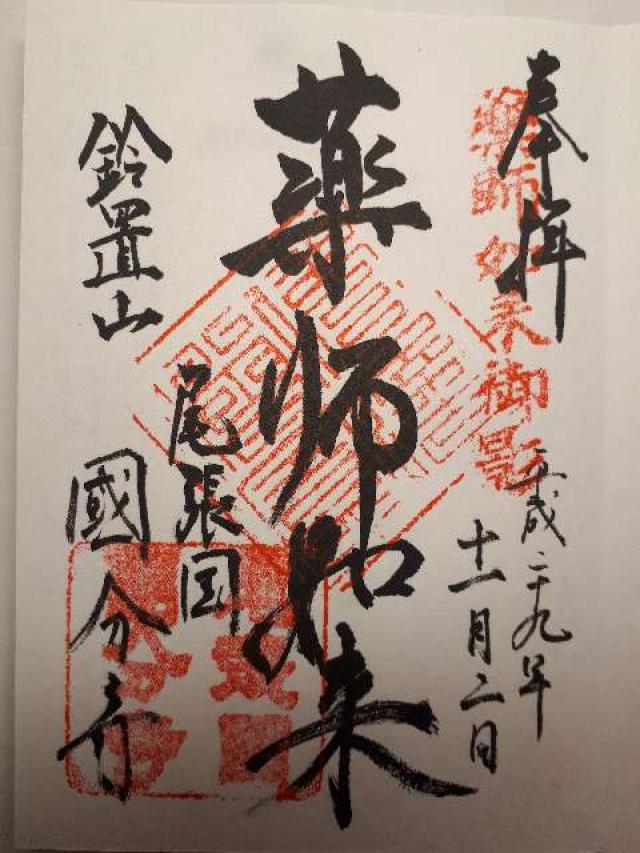 奉拝
薬師如来御影
平成二十九年
十一月二日
薬師如来
尾張国
鈴置山
國分寺